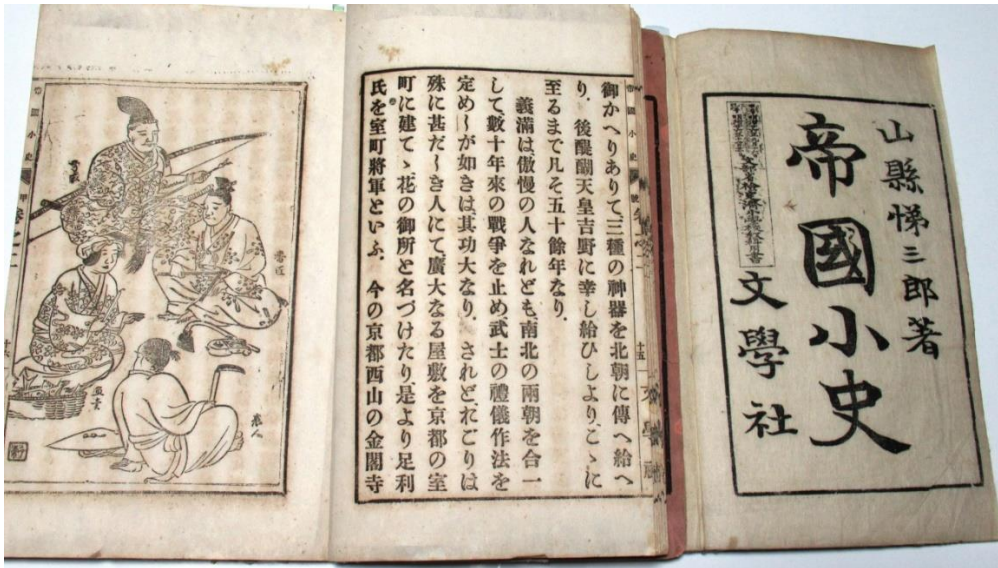 山縣悌三郎著
帝國小史
文學社
御かへりありて、三種の神器を北朝に傳へ給へ
り、後醍醐天皇吉野に幸し給ひしより、こゝに
至るまで凡そ五十餘年なり、
義滿は、傲慢の人なれども、南北の兩朝を合一
して、數十年來の戰爭を止め、武士の禮儀作法を
定めしが如きは其功大なり、されど、れごりは
殊に甚だしき人にて、廣大なる屋敷を京都の室
町に建てゝ、花の御所と名づけたり是より足利
氏を室町將軍といふ、今の京都西山の金閣寺
帝國小史
十五
帝國小史